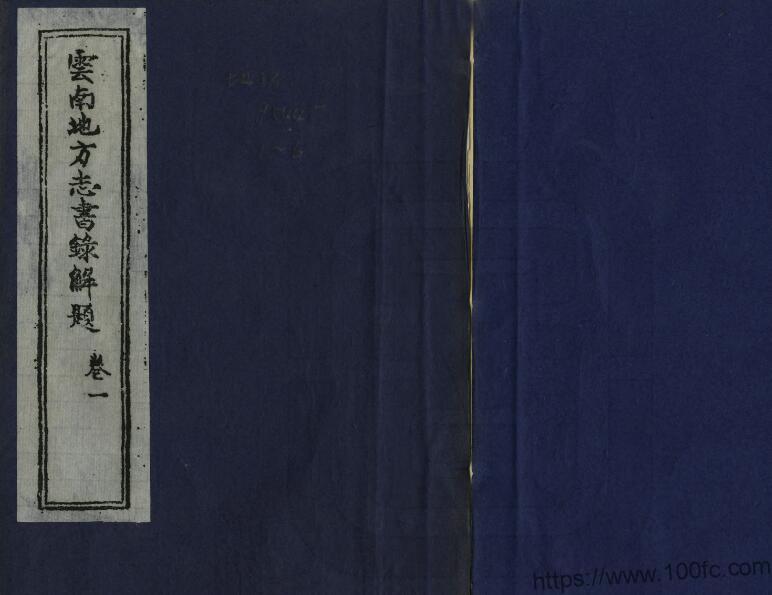 雲南地方志書錄解題
卷一
https://www.100fc.com